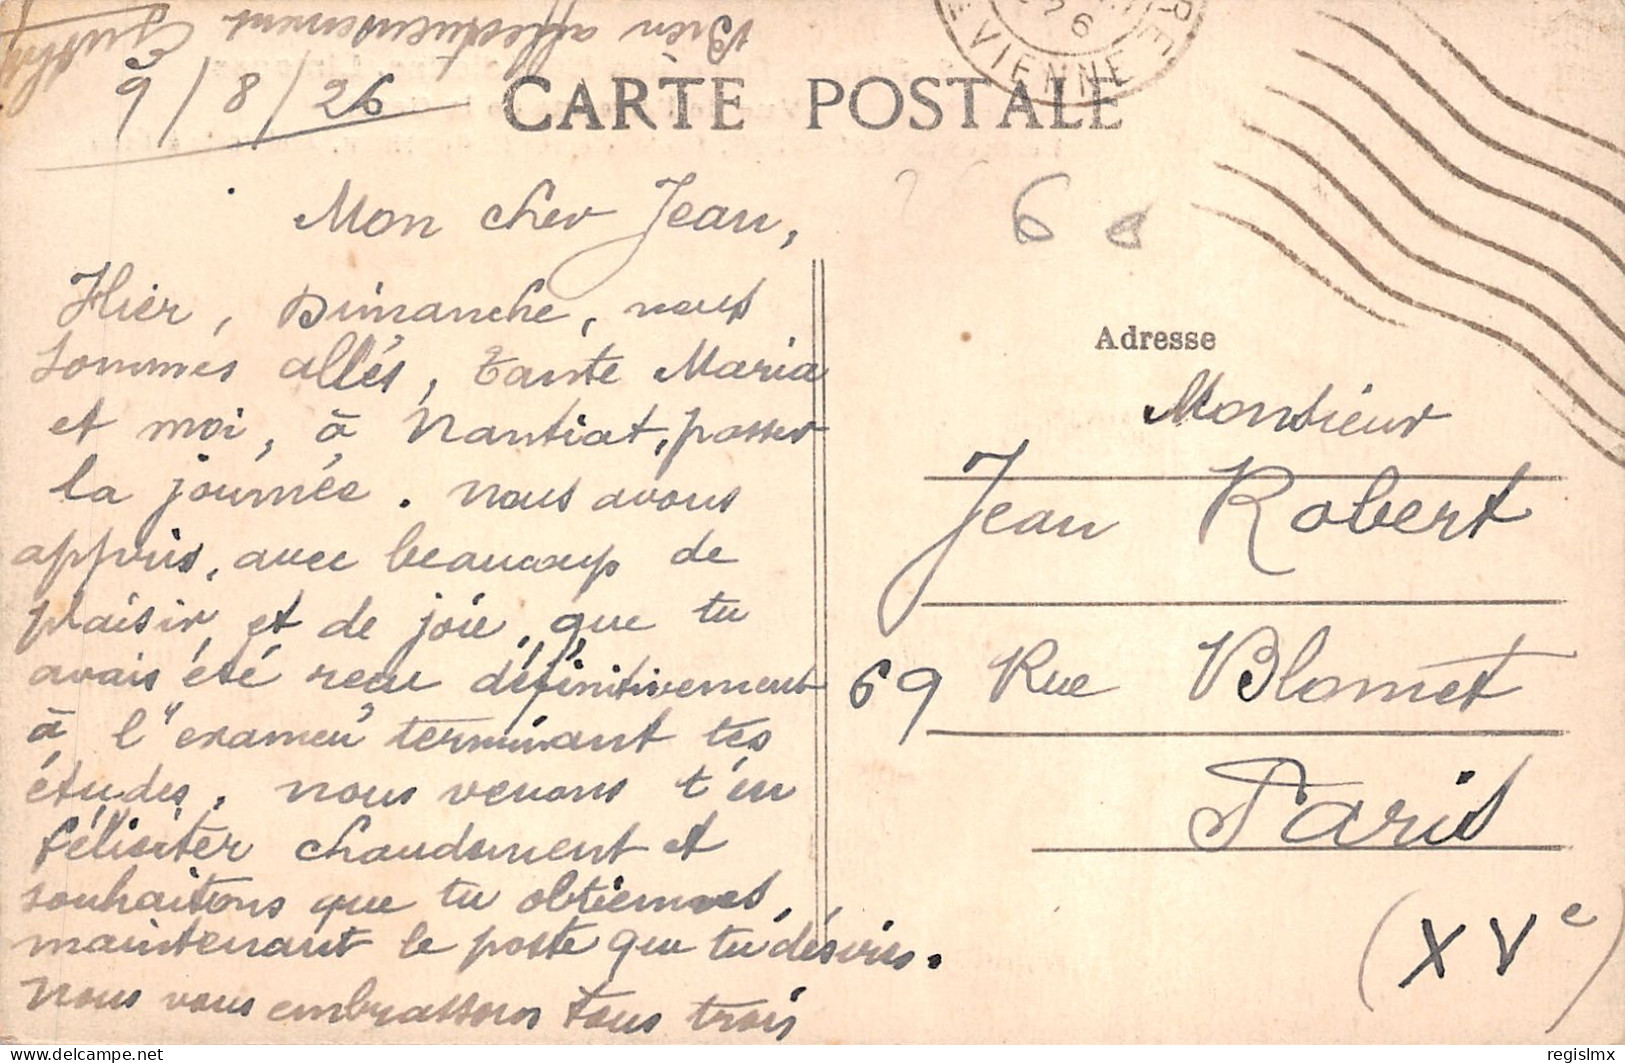 9/8/26
CARTE POSTALE
VIENNE
26
Mon cher Jean,
Hier, Dimanche, nous
sommes allés, Tante Maria
et moi, à Nantiat, passer
la journée. Nous avons
appris, avec beaucoup de
plaisir et de joie, que tu
avais été reçu définitivement
à l'"examen" terminant tes
études, nous venons t'en
féliciter chaudement et
souhaitons que tu obtiennes,
maintenant le poste que tu désires.
Nous vous embrassons tous trois
Bien affectueusement
6
Adresse
Monsieur
Jean Robert
69 Rue Blomet
Paris
(XVe)
regislmx
www.delcampe.net